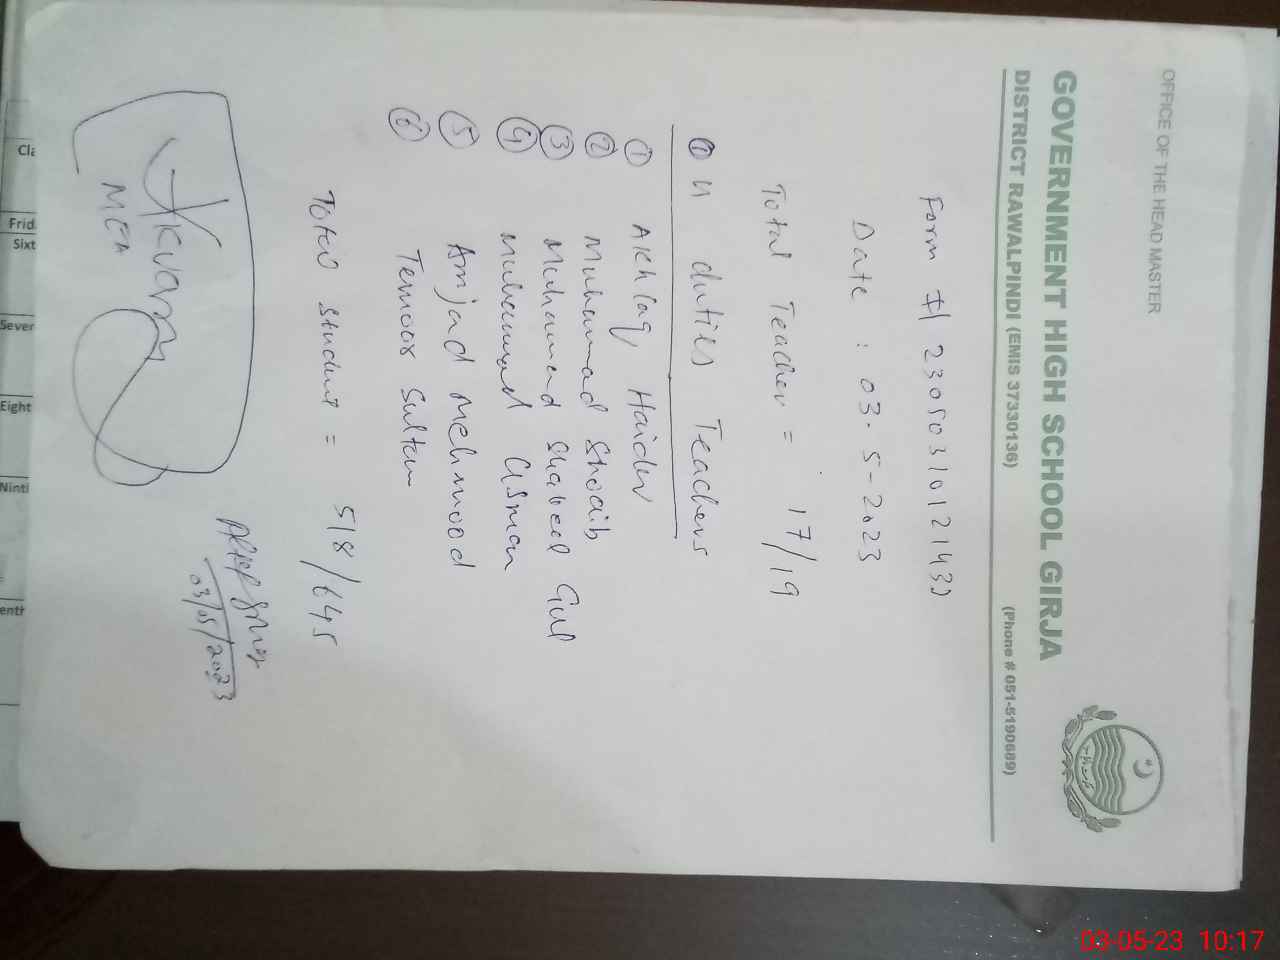 OFFICE OF THE HEAD MASTER
GOVERNMENT HIGH SCHOOL GIRJA
DISTRICT RAWALPINDI (EMIS 37330136) (Phone # 051-5190689)
Form # 2305031012143
Date : 03-5-2023
Total Teacher = 17/19
On duties Teachers
① Akhlaq Haider
② Muhammad Shoaib
③ Muhammad Shakeel Gul
④ Muhammad Usman
⑤ Amjad Mehmood
⑥ Temoor Sultan
Total student = 518/645
MEA
03/05/2023
Cla
Frid
Sixt
Seven
Eight
Nintl
enth
03-05-23 10:17